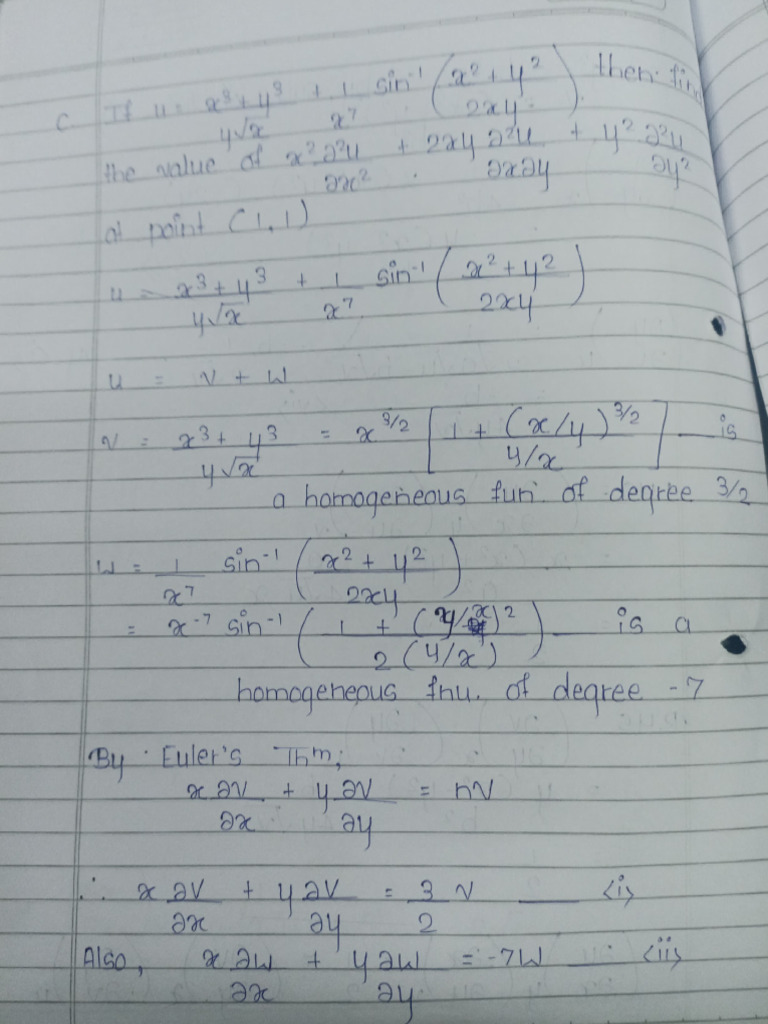 C. If u = x³ + y³ / y√x + 1/x⁷ sin⁻¹ (x² + y² / 2xy) then find
the value of x² ∂²u/∂x² + 2xy ∂²u/∂x∂y + y² ∂²u/∂y²
at point (1,1)
u = x³ + y³ / y√x + 1/x⁷ sin⁻¹ (x² + y² / 2xy)
u = v + w
v = x³ + y³ / y√x = x^3/2 [1 + (x/y)^3/2 / y/x] — is
a homogeneous fun. of degree 3/2
w = 1/x⁷ sin⁻¹ (x² + y² / 2xy)
= x⁻⁷ sin⁻¹ (1 + (y/x)² / 2(y/x)) — is a
homogeneous fnu. of degree -7
By Euler's Thm;
x ∂v/∂x + y ∂v/∂y = nv
∴ x ∂v/∂x + y ∂v/∂y = 3/2 v — <i>
Also, x ∂w/∂x + y ∂w/∂y = -7w — <ii>